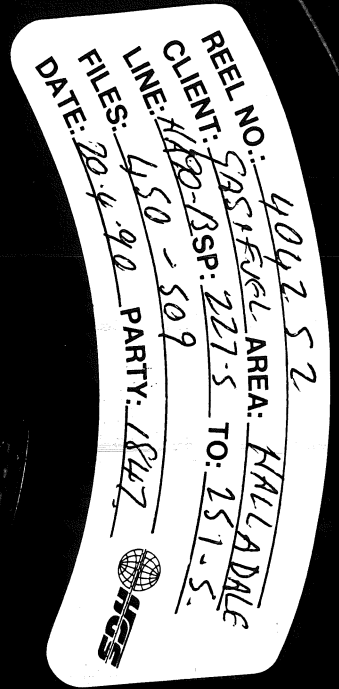 REEL NO.: 404252
CLIENT: GAS+FUEL AREA: HALLADALE
LINE: HA90-B SP: 227-5 TO: 257-5.
FILES: 450 - 509
DATE: 20.4.90 PARTY: 1847.
HGS